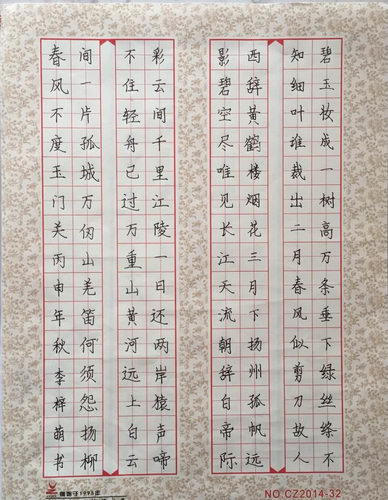 碧玉妆成一树高万条垂下绿丝绦不
知细叶谁裁出二月春风似剪刀故人
西辞黄鹤楼烟花三月下扬州孤帆远
影碧空尽唯见长江天流朝辞白帝际
彩云间千里江陵一日还两岸猿声啼
不住轻舟已过万重山黄河远上白云
间一片孤城万仞山羌笛何须怨扬柳
春风不度玉门关丙申年秋李梓萌书
NO.CZ2014-32